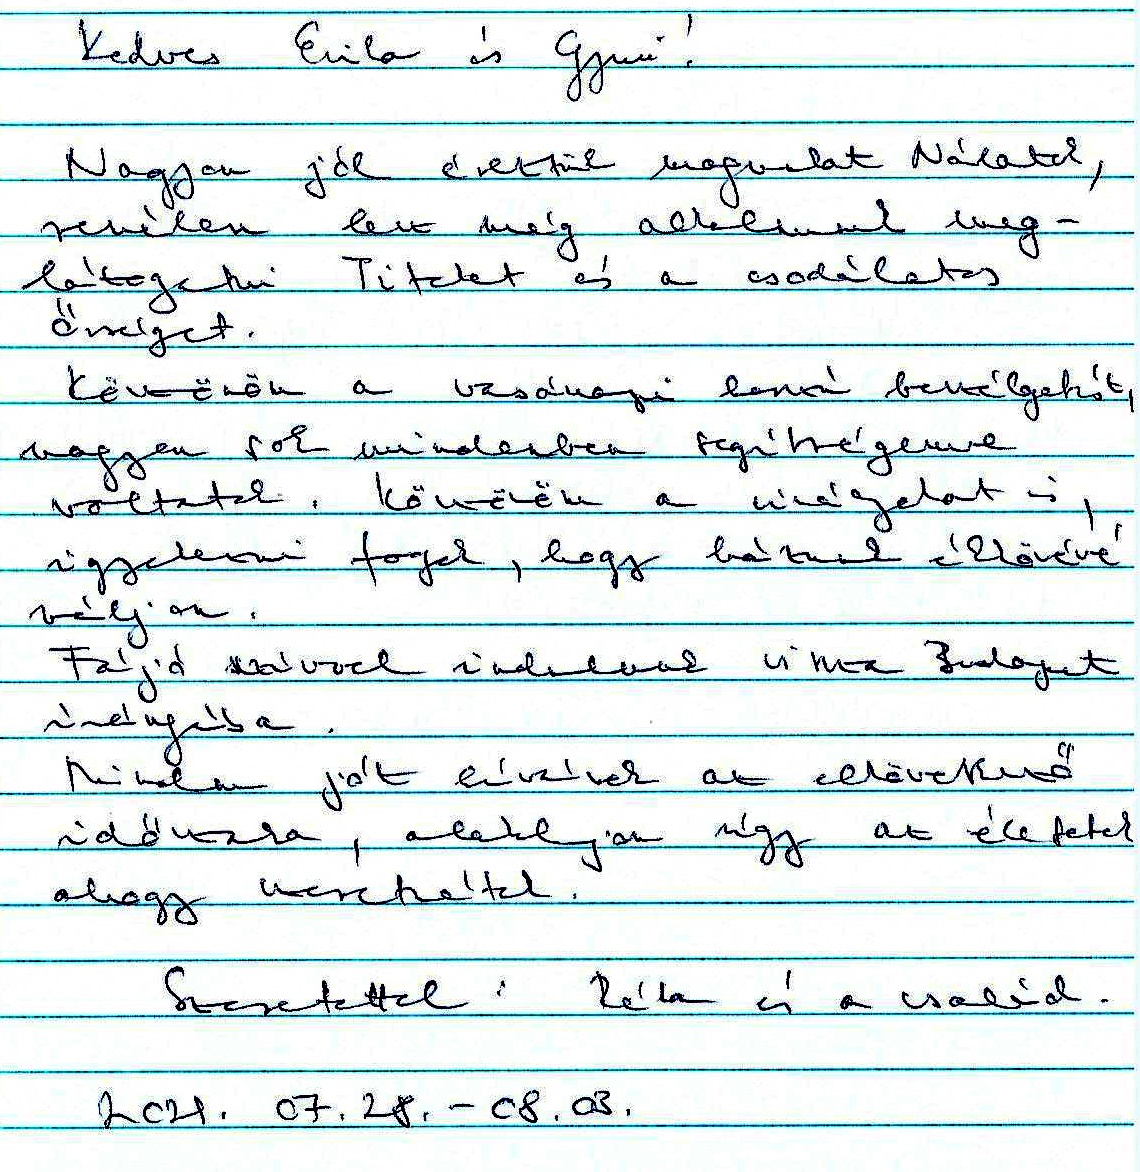 Kedves Erika és Gyuri!
Nagyon jól éreztük magunkat Nálatok,
remélem lesz még alkalmunk meg-
látogatni Titeket és a csodálatos
Őrséget.
Köszönöm a vasárnapi hosszú beszélgetést,
nagyon sok mindenben segítségemre
voltatok. Köszönöm a virágokat is,
igyekezni fogok, hogy házunk ékkövévé
váljon.
Fájó szívvel indulunk vissza Budapest
irányába.
Minden jót kívánok az elkövetkező
időszakra, alakuljon úgy az életetek
ahogy szeretnétek.
Szeretettel: Réka és a család.
2021. 07.28. - 08.03.